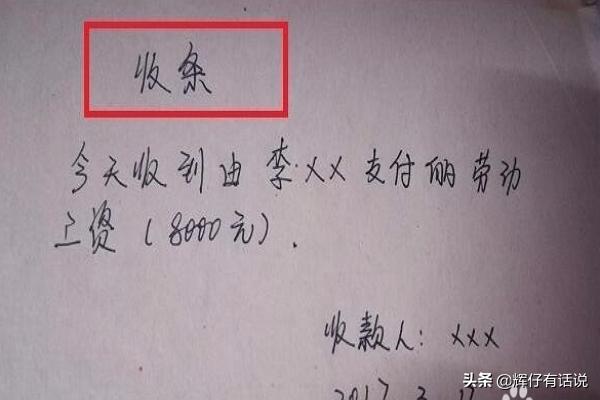 收条
今天收到由李·XX支付的劳动
工资(8000元).
收款人: xxx
2017.3.17
头条 @辉仔有话说